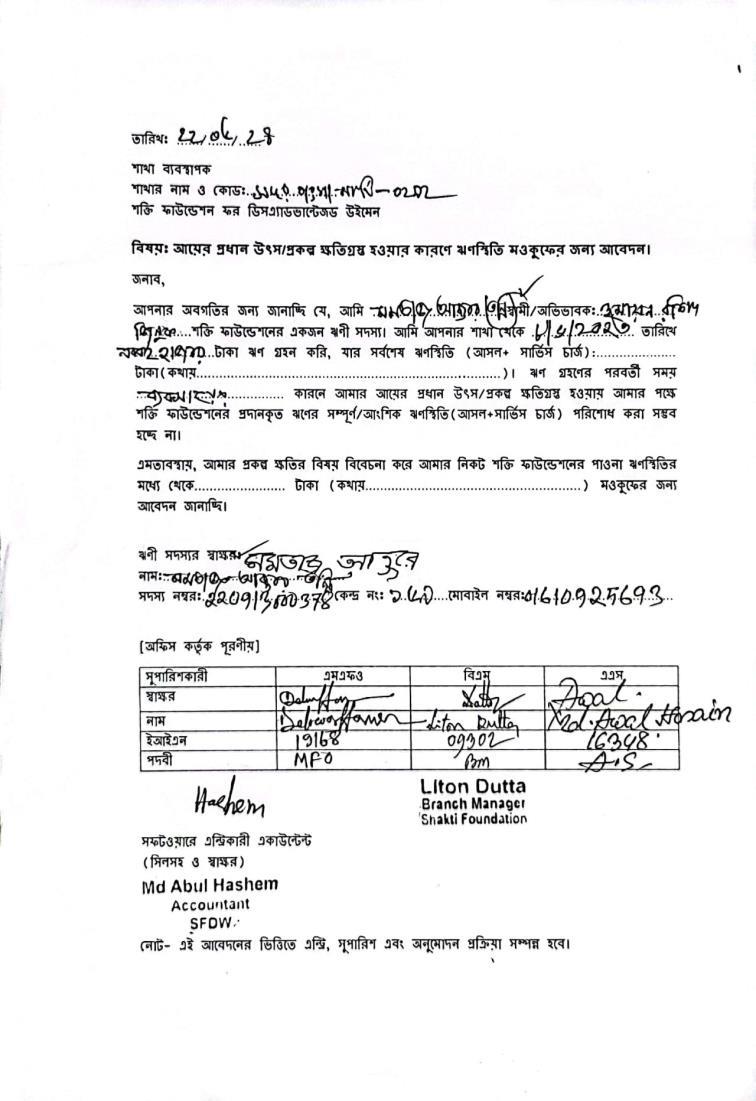 তারিখ: 22/04/24
শাখা ব্যবস্থাপক
শাখার নাম ও কোড:
শক্তি ফাউন্ডেশন ফর ডিসএ্যাডভান্টেজড উইমেন
বিষয়: আয়ের প্রধান উৎস/প্রকল্প ক্ষতিগ্রস্থ হওয়ার কারণে ঋণস্থিতি মওকুফের জন্য আবেদন।
জনাব,
আপনার অবগতির জন্য জানাচ্ছি যে, আমি মমতাজ আক্তার স্বামী/অভিভাবক:
শক্তি ফাউন্ডেশনের একজন ঋণী সদস্য। আমি আপনার শাখা থেকে তারিখে
টাকা ঋণ গ্রহন করি, যার সর্বশেষ ঋণস্থিতি (আসল+ সার্ভিস চার্জ):....................
টাকা(কথায়........................................................)। ঋণ গ্রহণের পরবর্তী সময়
কারনে আমার আয়ের প্রধান উৎস/প্রকল্প ক্ষতিগ্রস্থ হওয়ায় আমার পক্ষে
শক্তি ফাউন্ডেশনের প্রদানকৃত ঋণের সম্পূর্ণ/আংশিক ঋণস্থিতি(আসল+সার্ভিস চার্জ) পরিশোধ করা সম্ভব
হচ্ছে না।
এমতাবস্থায়, আমার প্রকল্প ক্ষতির বিষয় বিবেচনা করে আমার নিকট শক্তি ফাউন্ডেশনের পাওনা ঋণস্থিতির
মধ্যে থেকে....................... টাকা (কথায়.......................................................) মওকুফের জন্য
আবেদন জানাচ্ছি।
ঋণী সদস্যর স্বাক্ষর: মমতাজ আক্তার
নাম: মমতাজ আক্তার
সদস্য নম্বর: কেন্দ্র নং: মোবাইল নম্বর: 01610925693
[অফিস কর্তৃক পূরণীয়]
সুপারিশকারী এমএফও বিএম এএস
স্বাক্ষর Awal.
নাম Liton Dutta Md. Awal Hosain
ইআইএন 19168 09302 16348
পদবী MFO BM A.S
Hashem
Liton Dutta
Branch Manager
Shakti Foundation
সফটওয়ারে এন্ট্রিকারী একাউন্টেন্ট
(সিলসহ ও স্বাক্ষর)
Md Abul Hashem
Accountant
SFDW.
নোট- এই আবেদনের ভিত্তিতে এন্ট্রি, সুপারিশ এবং অনুমোদন প্রক্রিয়া সম্পন্ন হবে।